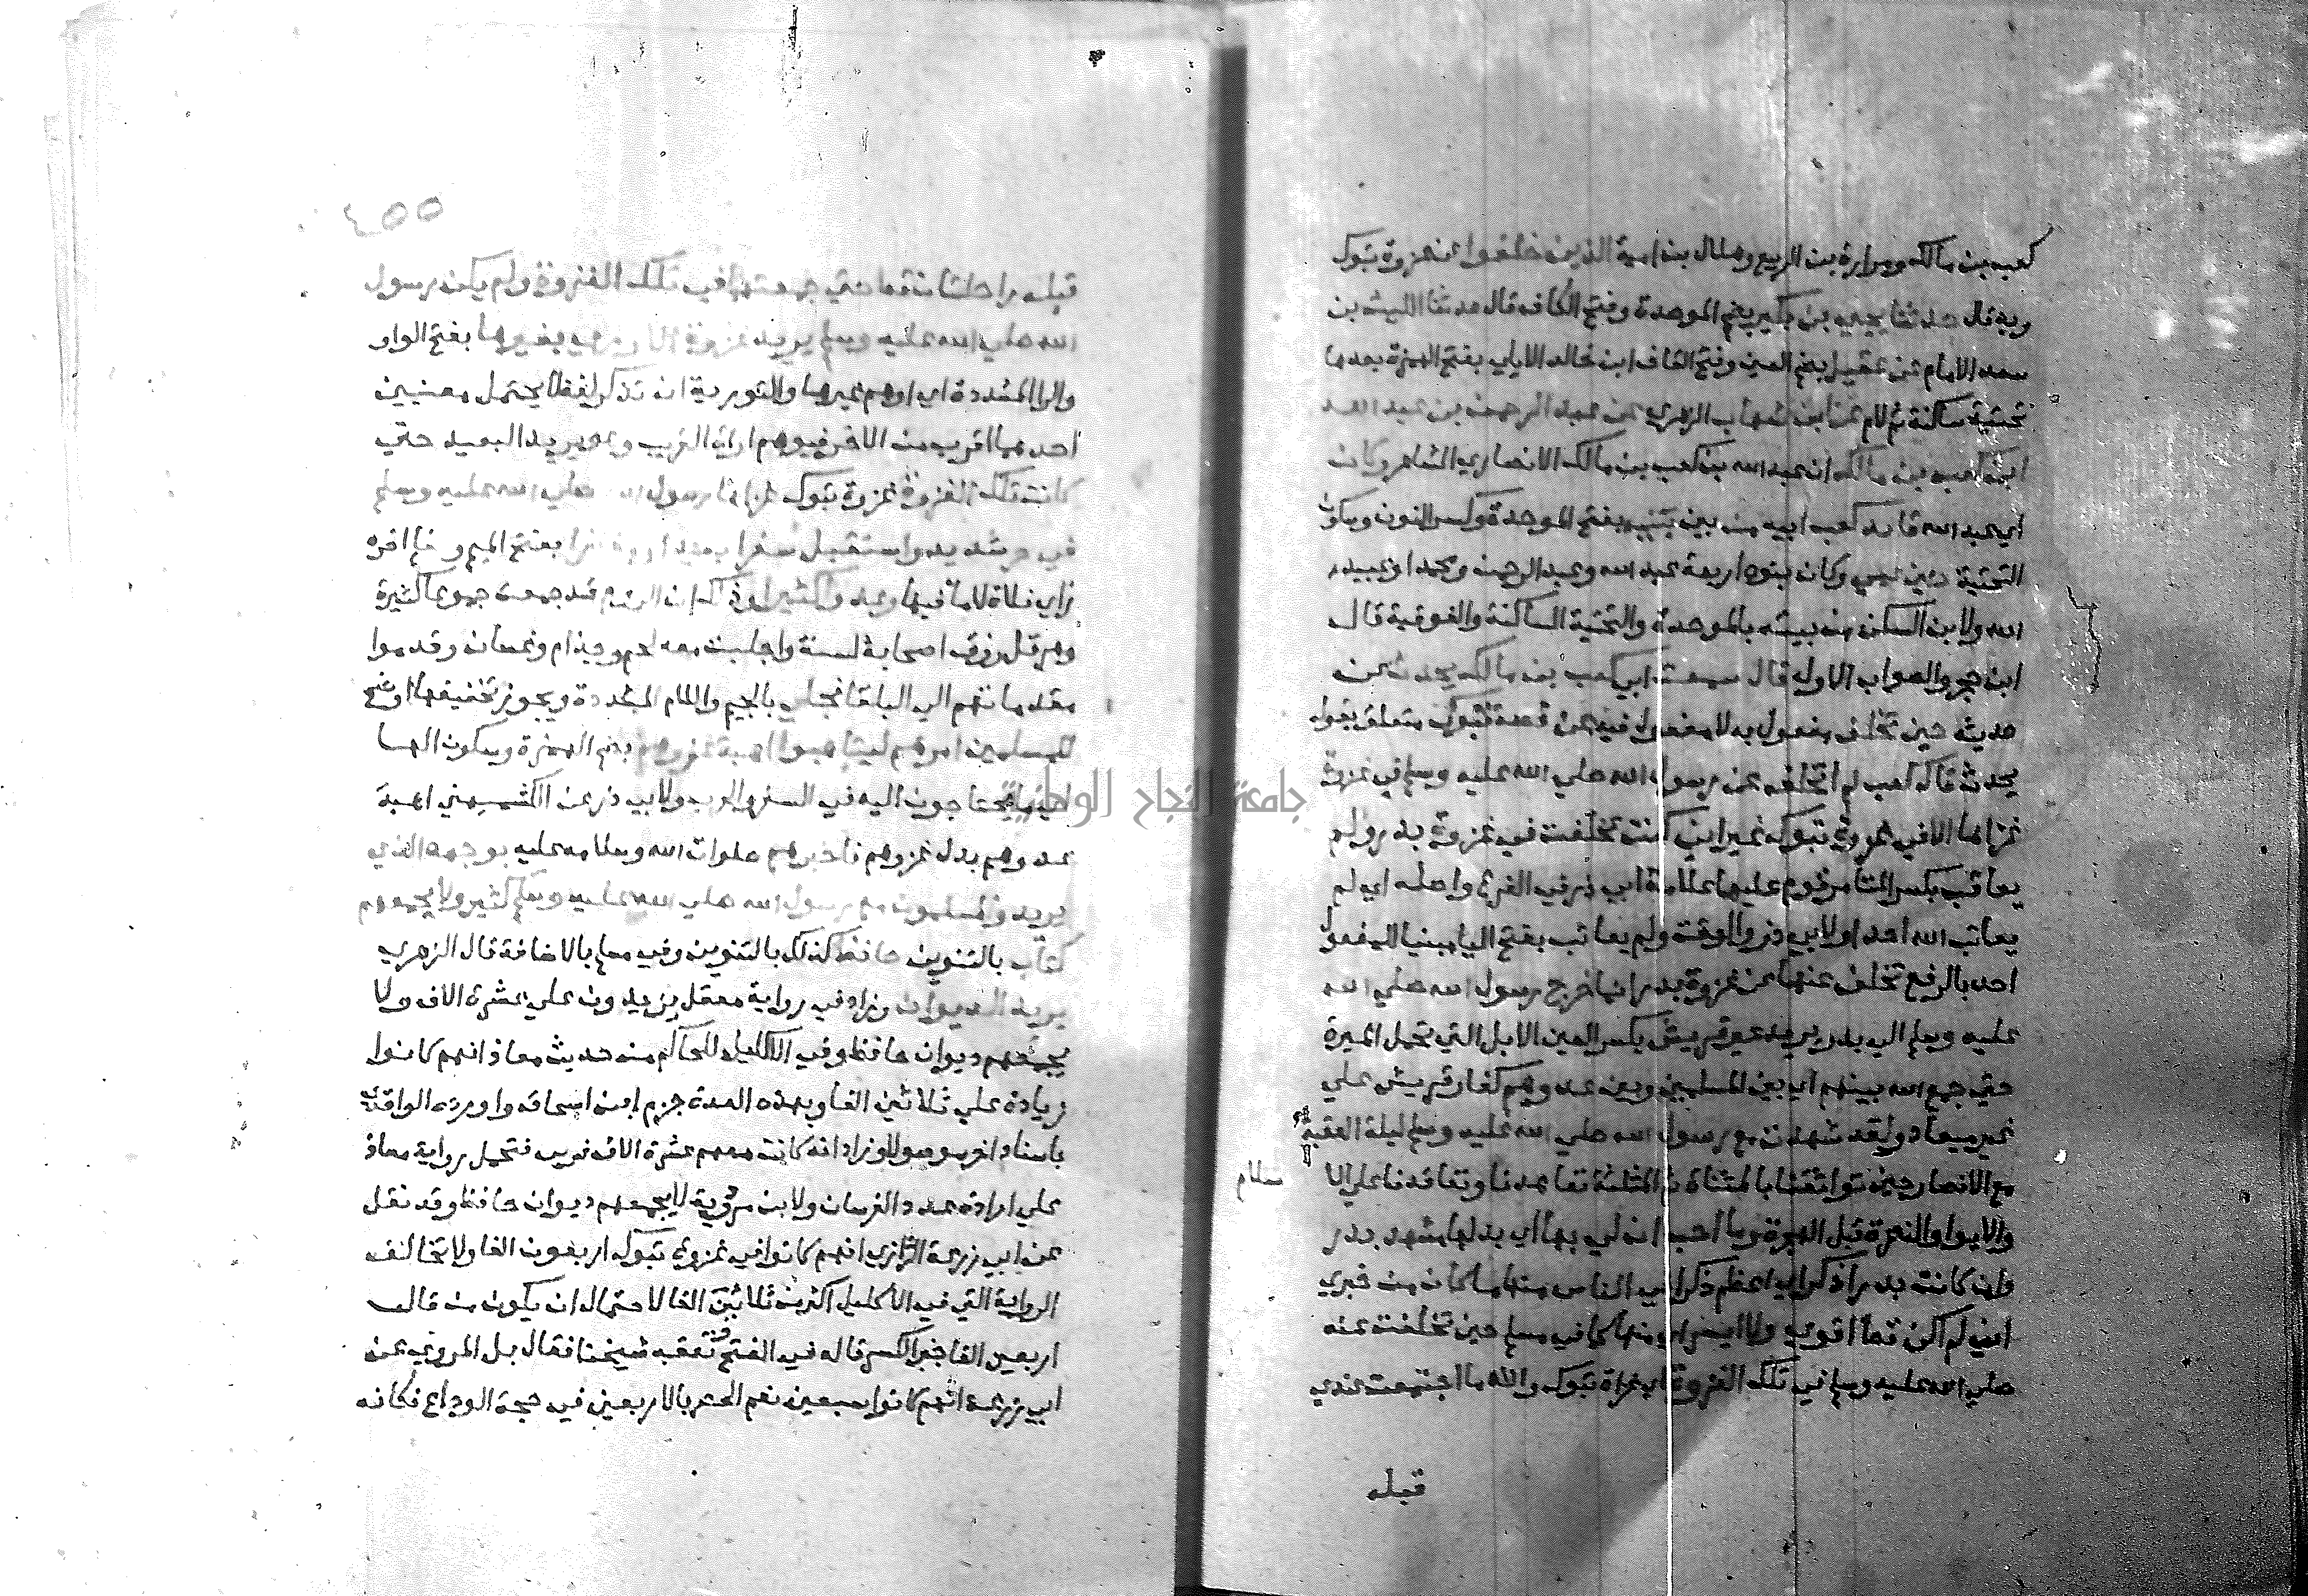 كعب بن مالك ومرارة بن الربيع وهلال بن امية الذين خلفوا عن غزوة تبوك
وبه قال حدثنا يحيي بن بكير بضم الموحدة وفتح الكاف قال حدثنا الليث بن
سعد الامام عن عقيل بضم العين وفتح القاف ابن خالد الايلي بفتح الهمزة بعدها
تحتية ساكنة ثم لام عن ابن شهاب الزهري عن عبد الرحمن بن عبد الله
ابن كعب بن مالك ان عبد الله بن كعب بن مالك الانصاري الشاعر وكان
اي عبد الله قايد كعب ابيه من بين بنيه بفتح الموحدة وكسر النون وسكون
التحتية حين عمي وكان بنوه اربعة عبد الله وعبد الرحمن ومحمد او عبيد
الله ولابن السكن من بيته بالموحدة والتحتية الساكنة والفوقية قال
ابن حجر والصواب الاول قال سمعت ابي كعب بن مالك يحدث عن
حديث حين تخلف مفعول به لا مفعول فيه عن قصة تبوك متعلق بقوله
يحدث قال كعب لم اتخلف عن رسول الله صلي الله عليه وسلم في غزوة
غزاها الا في غزوة تبوك غير اني كنت تخلفت في غزوة بدر ولم
يعاتب بكسر التا مرقوم عليها علامة ابي ذر في الفرع واصله اي لم
يعاتب الله احدا ولابي ذر والوقت ولم يعاتب بفتح اليا مبنيا للمفعول
احد بالرفع تخلف عنها عن غزوة بدر انما خرج رسول الله صلي الله
عليه وسلم الي بدر يريد عير قريش بكسر العين الابل التي تحمل الميرة
حتي جمع الله بينهم اي بين المسلمين وبين عدوهم كفار قريش علي
غير ميعاد ولقد شهدت مع رسول الله صلي الله عليه وسلم ليلة العقبة
مع الانصار حين تواثقنا بالمثناة ثم المثلثة تعاهدنا وتعاقدنا علي الا سلام
والايوا والنصرة قبل الهجرة وما احب ان لي بها اي بدلها مشهد بدر
وان كانت بدر اذكر اي اعظم ذكرا في الناس منها كان من خبري
اني لم اكن قط اقوي ولا ايسر اي منها كما في مسلم حين تخلفت عنه
صلي الله عليه وسلم في تلك الغزوة اي غزاة تبوك والله ما اجتمعت عندي
قبله
٤٥٥
قبله راحلتان قط حتي جمعتهما في تلك الغزوة ولم يكن رسول
الله صلي الله عليه وسلم يريد غزوة الا وري بغيرها بفتح الواو
والرا المشددة اي اوهم غيرها والتورية ان تذكر لفظا يحتمل معنيين
احدهما اقرب من الاخر فيوهم ارادة القريب وهو يريد البعيد حتي
كانت تلك الغزوة غزوة تبوك غزاها رسول الله صلي الله عليه وسلم
في حر شديد واستقبل سفرا بعيدا ومفازا بفتح الميم وفا اخره
زاي فلاة لا ما فيها وعدوا كثيرا وذكر ان الروم قد جمعت جموعا كثيرة
وهرقل رزق اصحابه لسنة واجلبت معه لخم وجذام وغسان وقدموا
مقدماتهم الي البلقا فجلي بالجيم واللام المشددة ويجوز تخفيفها اوضح
للمسلمين امرهم ليتاهبوا اهبة غزوهم بضم الهمزة وسكون الها
اي ما يحتاجون اليه في السفر والحرب ولابي ذر عن الكشميهني اهبة
عدوهم بدل غزوهم فاخبرهم صلوات الله وسلامه عليه بوجهه الذي
يريد والمسلمون مع رسول الله صلي الله عليه وسلم كثير ولا يجمعهم
كتاب بالتنوين حافظ كذلك بالتنوين وفي مسلم بالاضافة قال الزهري
يريد الديوان وزاد في رواية معقل يزيدون علي عشرة الاف ولا
يجمعهم ديوان حافظ وفي الاكليل للحاكم من حديث معاذ انهم كانوا
زيادة علي ثلاثين الفا وبهذه العدة جزم ابن اسحاق واورده الواقدي
باسناد اخر موصولا وزاد انه كانت معهم عشرة الاف فرس فتحمل رواية معاذ
علي ارادة عدد الفرسان ولابن مردوية لا يجمعهم ديوان حافظ وقد نقل
عن ابي زرعة الرازي انهم كانوا في غزوة تبوك اربعون الفا ولا تخالف
الرواية التي في الاكليل اكثر من ثلاثين الفا لاحتمال ان يكون من قال
اربعين الفا جبر الكسر قاله في الفتح وتعقبه شيخنا فقال بل المروي عن
ابي زرعة انهم كانوا سبعين نعم الحصر بالاربعين في حجة الوداع فكانه
جامعة النجاح الوطنية